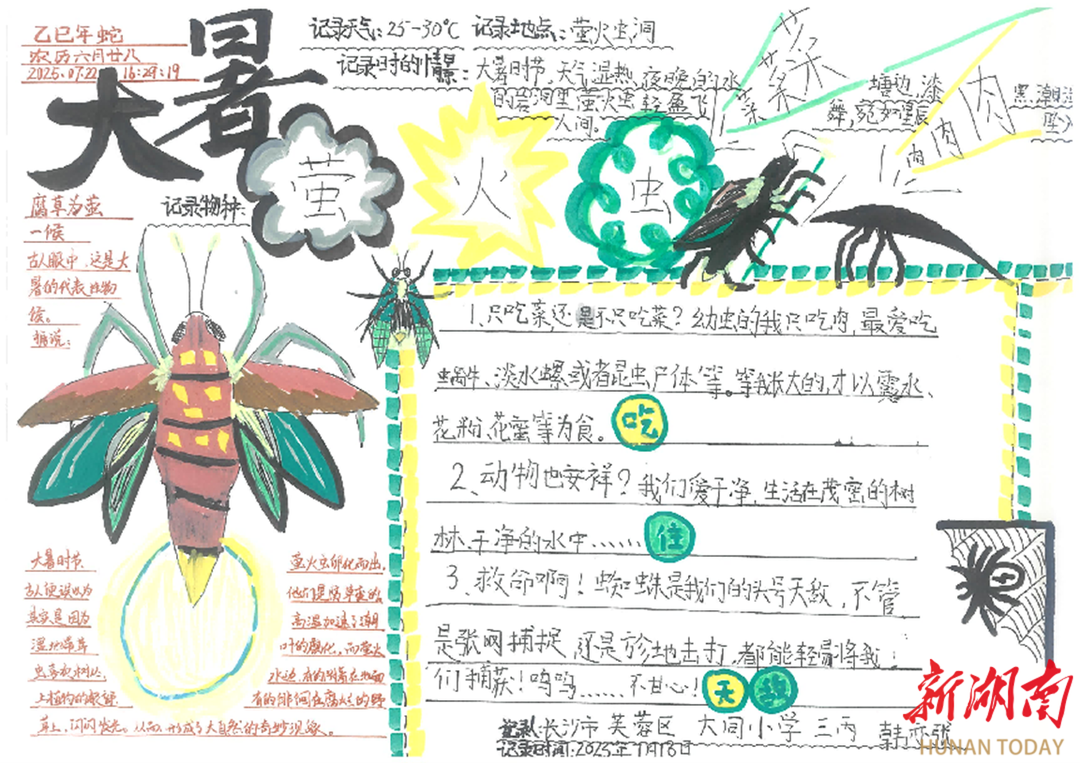 乙巳年蛇
农历六月廿八
2025.07.22 16:29:19
大暑
记录天气:25-30°C 记录地点:萤火虫洞
记录时的情景:大暑时节,天气湿热,夜晚的水塘边,漆黑,潮湿
的岩洞里萤火虫轻盈飞舞,宛如星辰坠入
人间。
菜
菜
菜
肉
肉
肉
记录物种:
萤火虫
腐草为萤
一候
古人眼中,这是大
暑的代表性物
候。
据说:
1、只吃菜还是不只吃菜?幼虫的我只吃肉,最爱吃
蜗牛、淡水螺或者昆虫尸体等。等我长大的,才以露水、
花粉、花蜜等为食。吃
2、动物也安祥?我们爱干净,生活在茂密的树
林、干净的水中……住
3、救命啊!蜘蛛是我们的头号天敌,不管
是张网捕捉,还是于地击打,都能轻易将我
们捕获!呜呜……不甘心!天敌
大暑时节
萤火虫卵化而出,
古人便误以为
他们是腐草变的
其实是因为
高温加速了潮
湿地带草
叶的腐化,而萤火
虫喜欢栖息
水边,有的附着在地面
上植物的根茎
有的徘徊在腐烂的野
草上,闪闪发光。从而,形成了大自然的奇妙现象。
长沙市芙蓉区 大同小学 三丙 韩
记录时间:2025年7月18日
新湖南
HUNAN TODAY